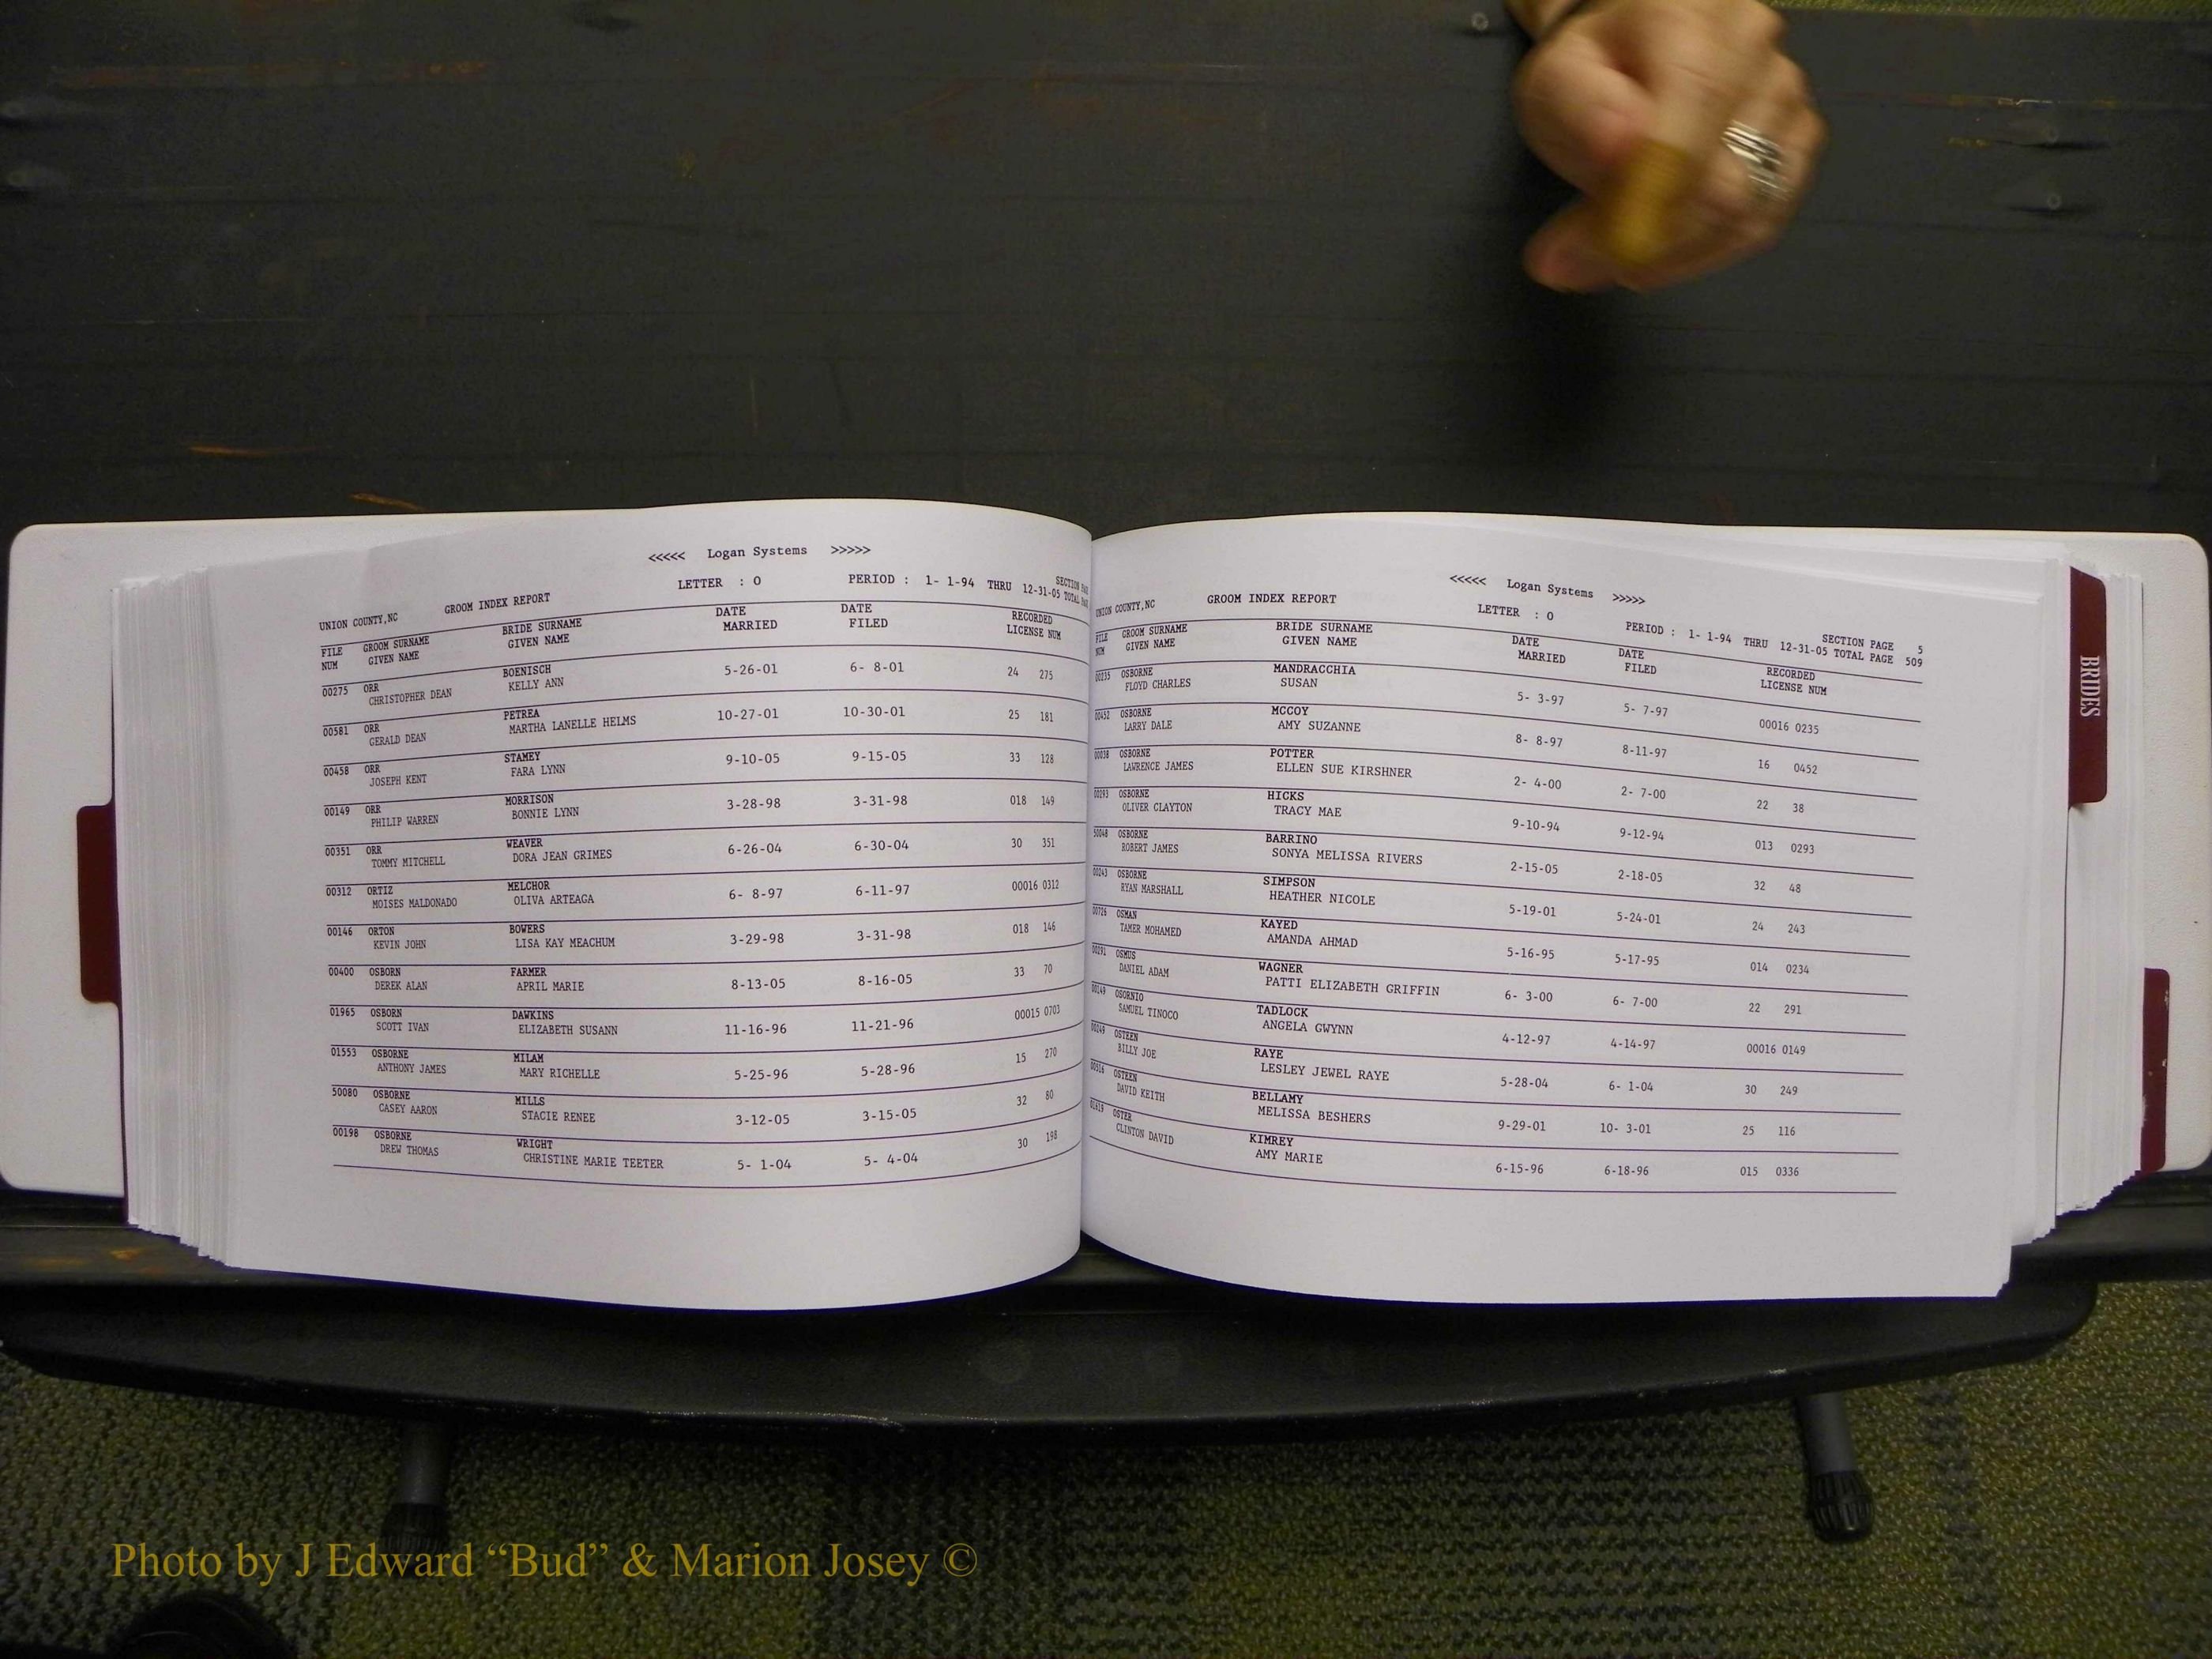 <<<<< Logan Systems >>>>>
UNION COUNTY,NC GROOM INDEX REPORT LETTER : O PERIOD : 1- 1-94 THRU 12-31-05
FILE GROOM SURNAME BRIDE SURNAME DATE DATE RECORDED
NUM GIVEN NAME GIVEN NAME MARRIED FILED LICENSE NUM
00275 ORR BOENISCH 5-26-01 6- 8-01 24 275
CHRISTOPHER DEAN KELLY ANN
00581 ORR PETREA 10-27-01 10-30-01 25 181
GERALD DEAN MARTHA LANELLE HELMS
00458 ORR STAMEY 9-10-05 9-15-05 33 128
JOSEPH KENT FARA LYNN
00149 ORR MORRISON 3-28-98 3-31-98 018 149
PHILIP WARREN BONNIE LYNN
00351 ORR WEAVER 6-26-04 6-30-04 30 351
TOMMY MITCHELL DORA JEAN GRIMES
00312 ORTIZ MELCHOR 6- 8-97 6-11-97 00016 0312
MOISES MALDONADO OLIVA ARTEAGA
00146 ORTON BOWERS 3-29-98 3-31-98 018 146
KEVIN JOHN LISA KAY MEACHUM
00400 OSBORN FARMER 8-13-05 8-16-05 33 70
DEREK ALAN APRIL MARIE
01965 OSBORN DAWKINS 11-16-96 11-21-96 00015 0703
SCOTT IVAN ELIZABETH SUSANN
01553 OSBORNE MILAM 5-25-96 5-28-96 15 270
ANTHONY JAMES MARY RICHELLE
50080 OSBORNE MILLS 3-12-05 3-15-05 32 80
CASEY AARON STACIE RENEE
00198 OSBORNE WRIGHT 5- 1-04 5- 4-04 30 198
DREW THOMAS CHRISTINE MARIE TEETER
<<<<< Logan Systems >>>>>
UNION COUNTY,NC GROOM INDEX REPORT LETTER : O PERIOD : 1- 1-94 THRU 12-31-05 SECTION PAGE 5
TOTAL PAGE 509
FILE GROOM SURNAME BRIDE SURNAME DATE DATE RECORDED
NUM GIVEN NAME GIVEN NAME MARRIED FILED LICENSE NUM
00235 OSBORNE MANDRACCHIA 5- 3-97 5- 7-97 00016 0235
FLOYD CHARLES SUSAN
00452 OSBORNE MCCOY 8- 8-97 8-11-97 16 0452
LARRY DALE AMY SUZANNE
00038 OSBORNE POTTER 2- 4-00 2- 7-00 22 38
LAWRENCE JAMES ELLEN SUE KIRSHNER
00293 OSBORNE HICKS 9-10-94 9-12-94 013 0293
OLIVER CLAYTON TRACY MAE
50048 OSBORNE BARRINO 2-15-05 2-18-05 32 48
ROBERT JAMES SONYA MELISSA RIVERS
00243 OSBORNE SIMPSON 5-19-01 5-24-01 24 243
RYAN MARSHALL HEATHER NICOLE
OSMAN KAYED 5-16-95 5-17-95 014 0234
TAMER MOHAMED AMANDA AHMAD
00291 OSMUS WAGNER 6- 3-00 6- 7-00 22 291
DANIEL ADAM PATTI ELIZABETH GRIFFIN
00149 OSORNIO TADLOCK 4-12-97 4-14-97 00016 0149
SAMUEL TINOCO ANGELA GWYNN
00249 OSTEEN RAYE 5-28-04 6- 1-04 30 249
BILLY JOE LESLEY JEWEL RAYE
00516 OSTEEN BELLAMY 9-29-01 10- 3-01 25 116
DAVID KEITH MELISSA BESHERS
01619 OSTER KIMREY 6-15-96 6-18-96 015 0336
CLINTON DAVID AMY MARIE
BRIDES
Photo by J Edward “Bud” & Marion Josey ©